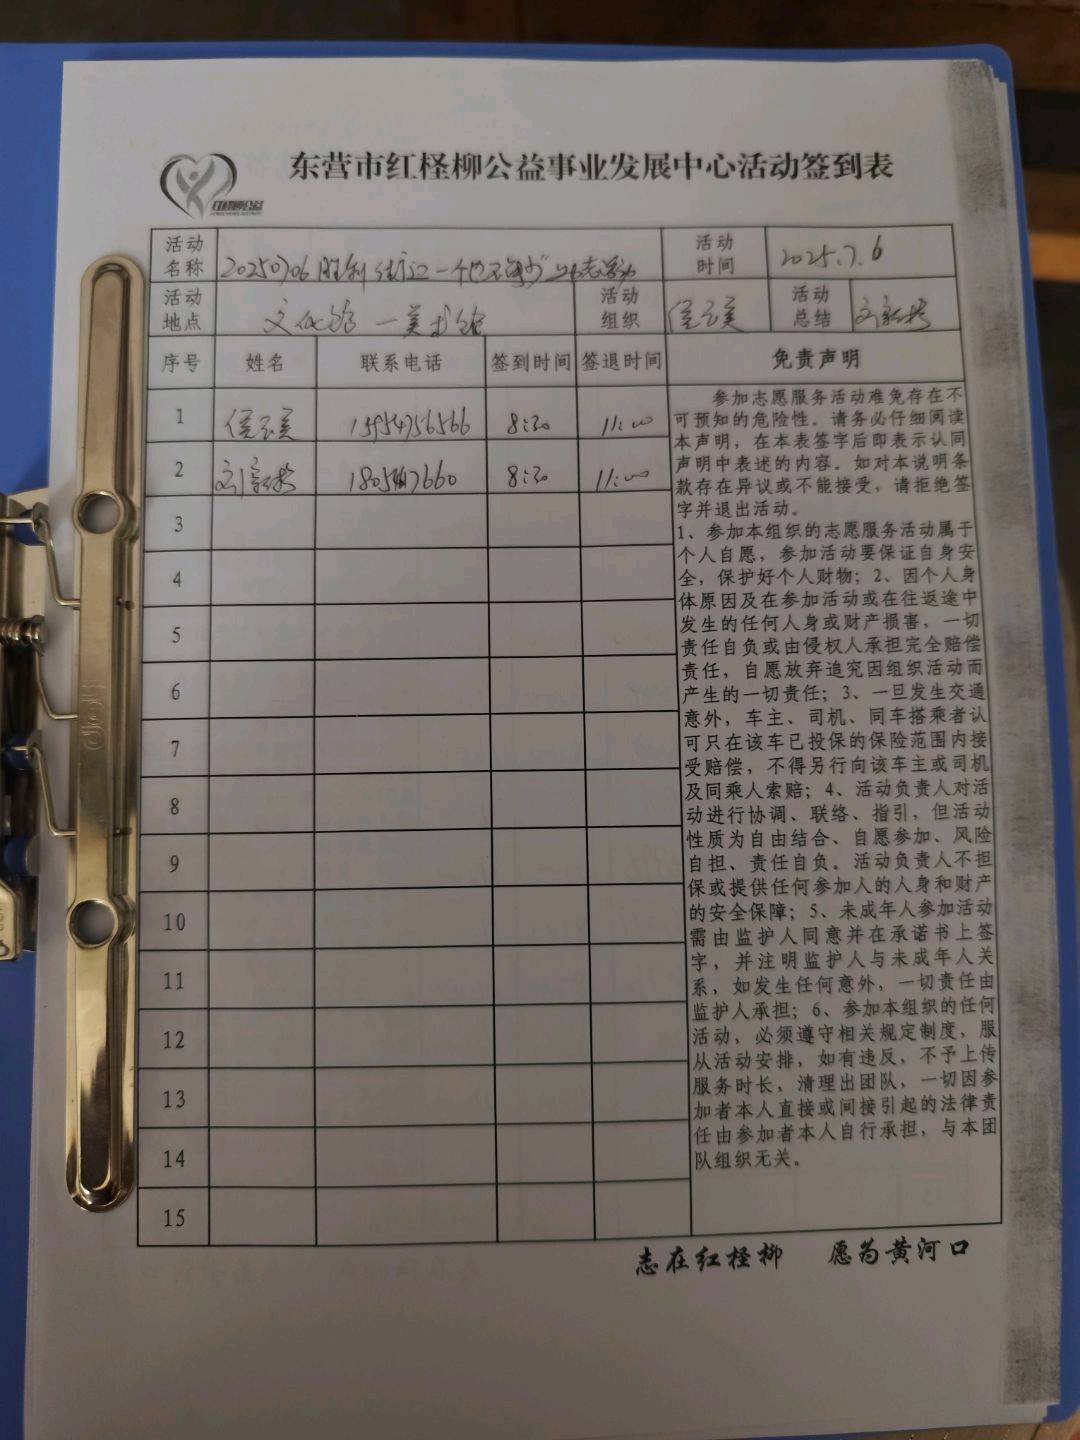 东营市红柽柳公益事业发展中心活动签到表
红柽柳公益
活动名称 20250706胜利街道一个也不能少
活动时间 2025.7.6
活动地点 文化馆—美术馆
活动组织 侯玉美
活动总结
序号 姓名 联系电话 签到时间 签退时间 免责声明
1 侯玉美 8:30 11:00
2 8:30 11:00
3
4
5
6
7
8
9
10
11
12
13
14
15
参加志愿服务活动难免存在不
可预知的危险性。请务必仔细阅读
本声明，在本表签字后即表示认同
声明中表述的内容。如对本说明条
款存在异议或不能接受，请拒绝签
字并退出活动。
1、参加本组织的志愿服务活动属于
个人自愿，参加活动要保证自身安
全，保护好个人财物；2、因个人身
体原因及在参加活动或在往返途中
发生的任何人身或财产损害，一切
责任自负或由侵权人承担完全赔偿
责任，自愿放弃追究因组织活动而
产生的一切责任；3、一旦发生交通
意外，车主、司机、同车搭乘者认
可只在该车已投保的保险范围内接
受赔偿，不得另行向该车主或司机
及同乘人索赔；4、活动负责人对活
动进行协调、联络、指引，但活动
性质为自由结合、自愿参加、风险
自担、责任自负。活动负责人不担
保或提供任何参加人的人身和财产
的安全保障；5、未成年人参加活动
需由监护人同意并在承诺书上签
字，并注明监护人与未成年人关
系，如发生任何意外，一切责任由
监护人承担；6、参加本组织的任何
活动，必须遵守相关规定制度，服
从活动安排，如有违反，不予上传
服务时长，清理出团队，一切因参
加者本人直接或间接引起的法律责
任由参加者本人自行承担，与本团
队组织无关。
志在红柽柳 愿为黄河口